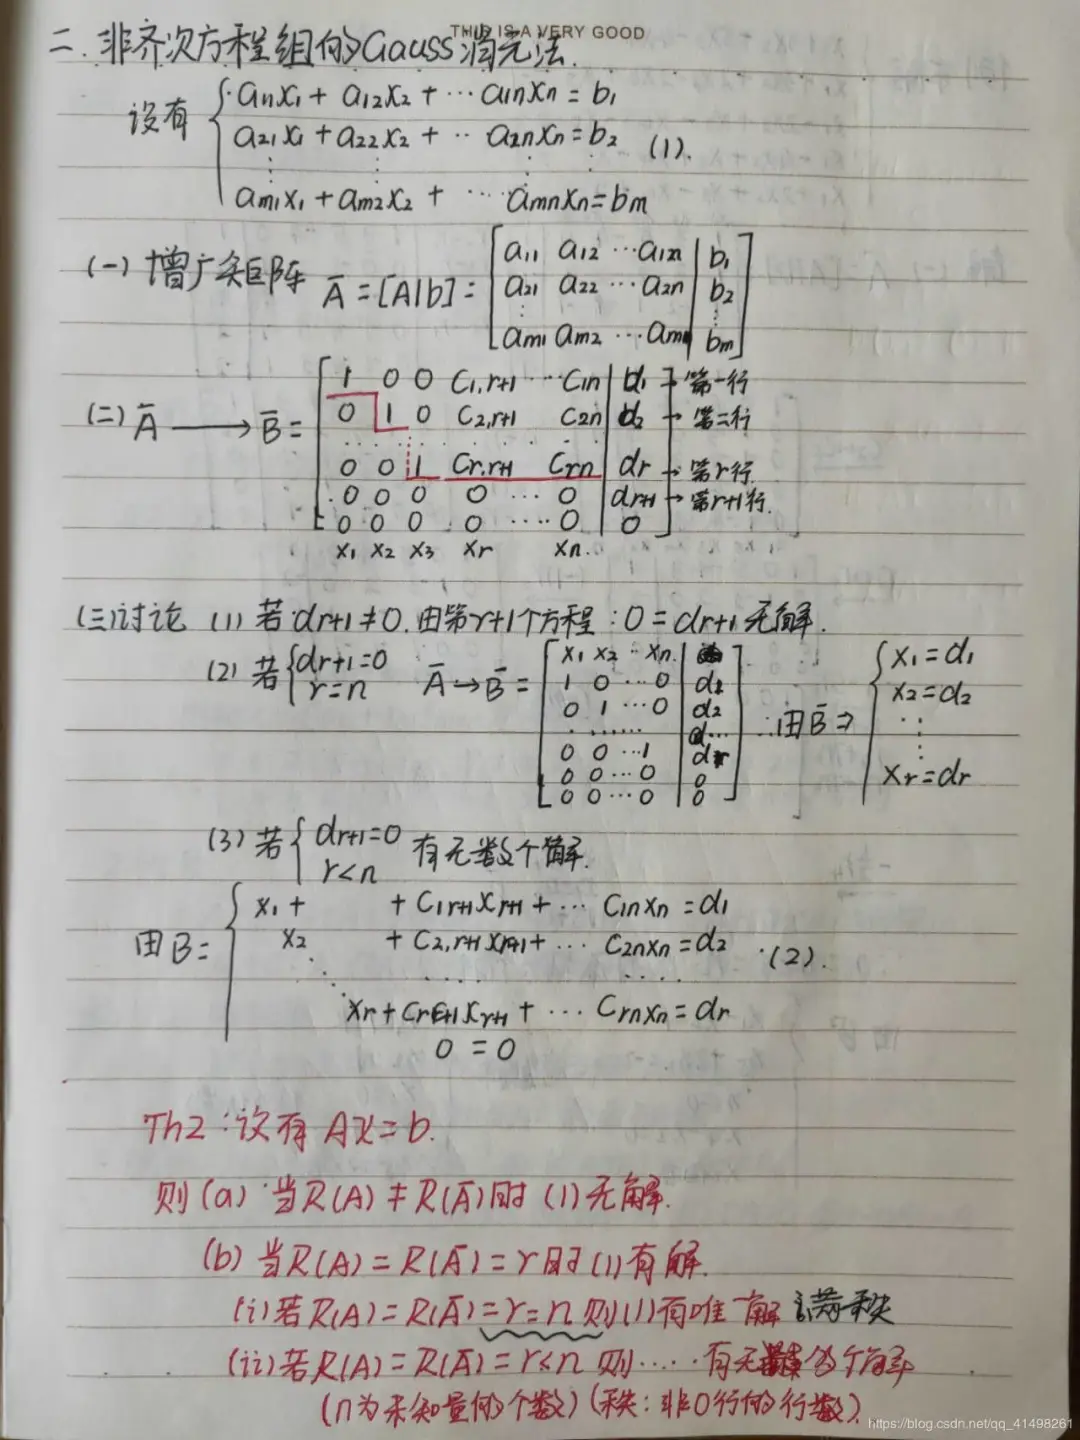 THIS IS A VERY GOOD
二. 非齐次方程组的Gauss消元法.
设有 { a11x1 + a12x2 + ⋯ a1nxn = b1
a21x1 + a22x2 + ⋯ a2nxn = b2 (1).
⋮ ⋮ ⋮ ⋮
am1x1 + am2x2 + ⋯ amnxn = bm
(一) 增广矩阵 Ā = [A|b] = [ a11 a12 ⋯ a1n | b1
a21 a22 ⋯ a2n | b2
⋮ ⋮
am1 am2 ⋯ amn | bm ]
(二) Ā ⟶ B̄ = [ 1 0 0 C1,r+1 ⋯ C1n | d1 → 第一行
0 1 0 C2,r+1 C2n | d2 → 第二行
⋯⋯⋯⋯
0 0 1 Cr,r+1 Crn | dr → 第r行
0 0 0 0 ⋯ 0 | dr+1 → 第r+1行.
0 0 0 0 ⋯ 0 | 0 ]
x1 x2 x3 xr xn.
(三) 讨论 (1) 若 dr+1 ≠ 0. 由第r+1个方程 : 0 = dr+1 无解.
(2) 若 { dr+1 = 0
r = n Ā → B̄ = [ x1 x2 ⋯ xn.
1 0 ⋯ 0 | d1
0 1 ⋯ 0 | d2
⋯⋯ | d⋯
0 0 ⋯ 1 | dr
0 0 ⋯ 0 | 0
0 0 ⋯ 0 | 0 ]
∴由B̄ ⇒ { x1 = d1
x2 = d2
⋮
xr = dr
(3) 若 { dr+1 = 0
r < n 有无数个解.
由B = { x1 + + C1r+1xr+1 + ⋯ C1nxn = d1
x2 + C2,r+1xr+1 + ⋯ C2nxn = d2 (2).
⋱ ⋯⋯ ⋯⋯
xr + Crr+1xr+1 + ⋯ Crnxn = dr
0 = 0
Th2 : 设有 Ax = b.
则 (a) 当R(A) ≠ R(Ā)时 (1) 无解.
(b) 当R(A) = R(Ā) = r 时 (1) 有解.
(i) 若R(A) = R(Ā) = r = n 则(1)有唯一解 满秩
(ii) 若R(A) = R(Ā) = r < n 则⋯⋯有无 个解
(n为未知量的个数) (秩 : 非0行的行数).
https://blog.csdn.net/qq_41498261